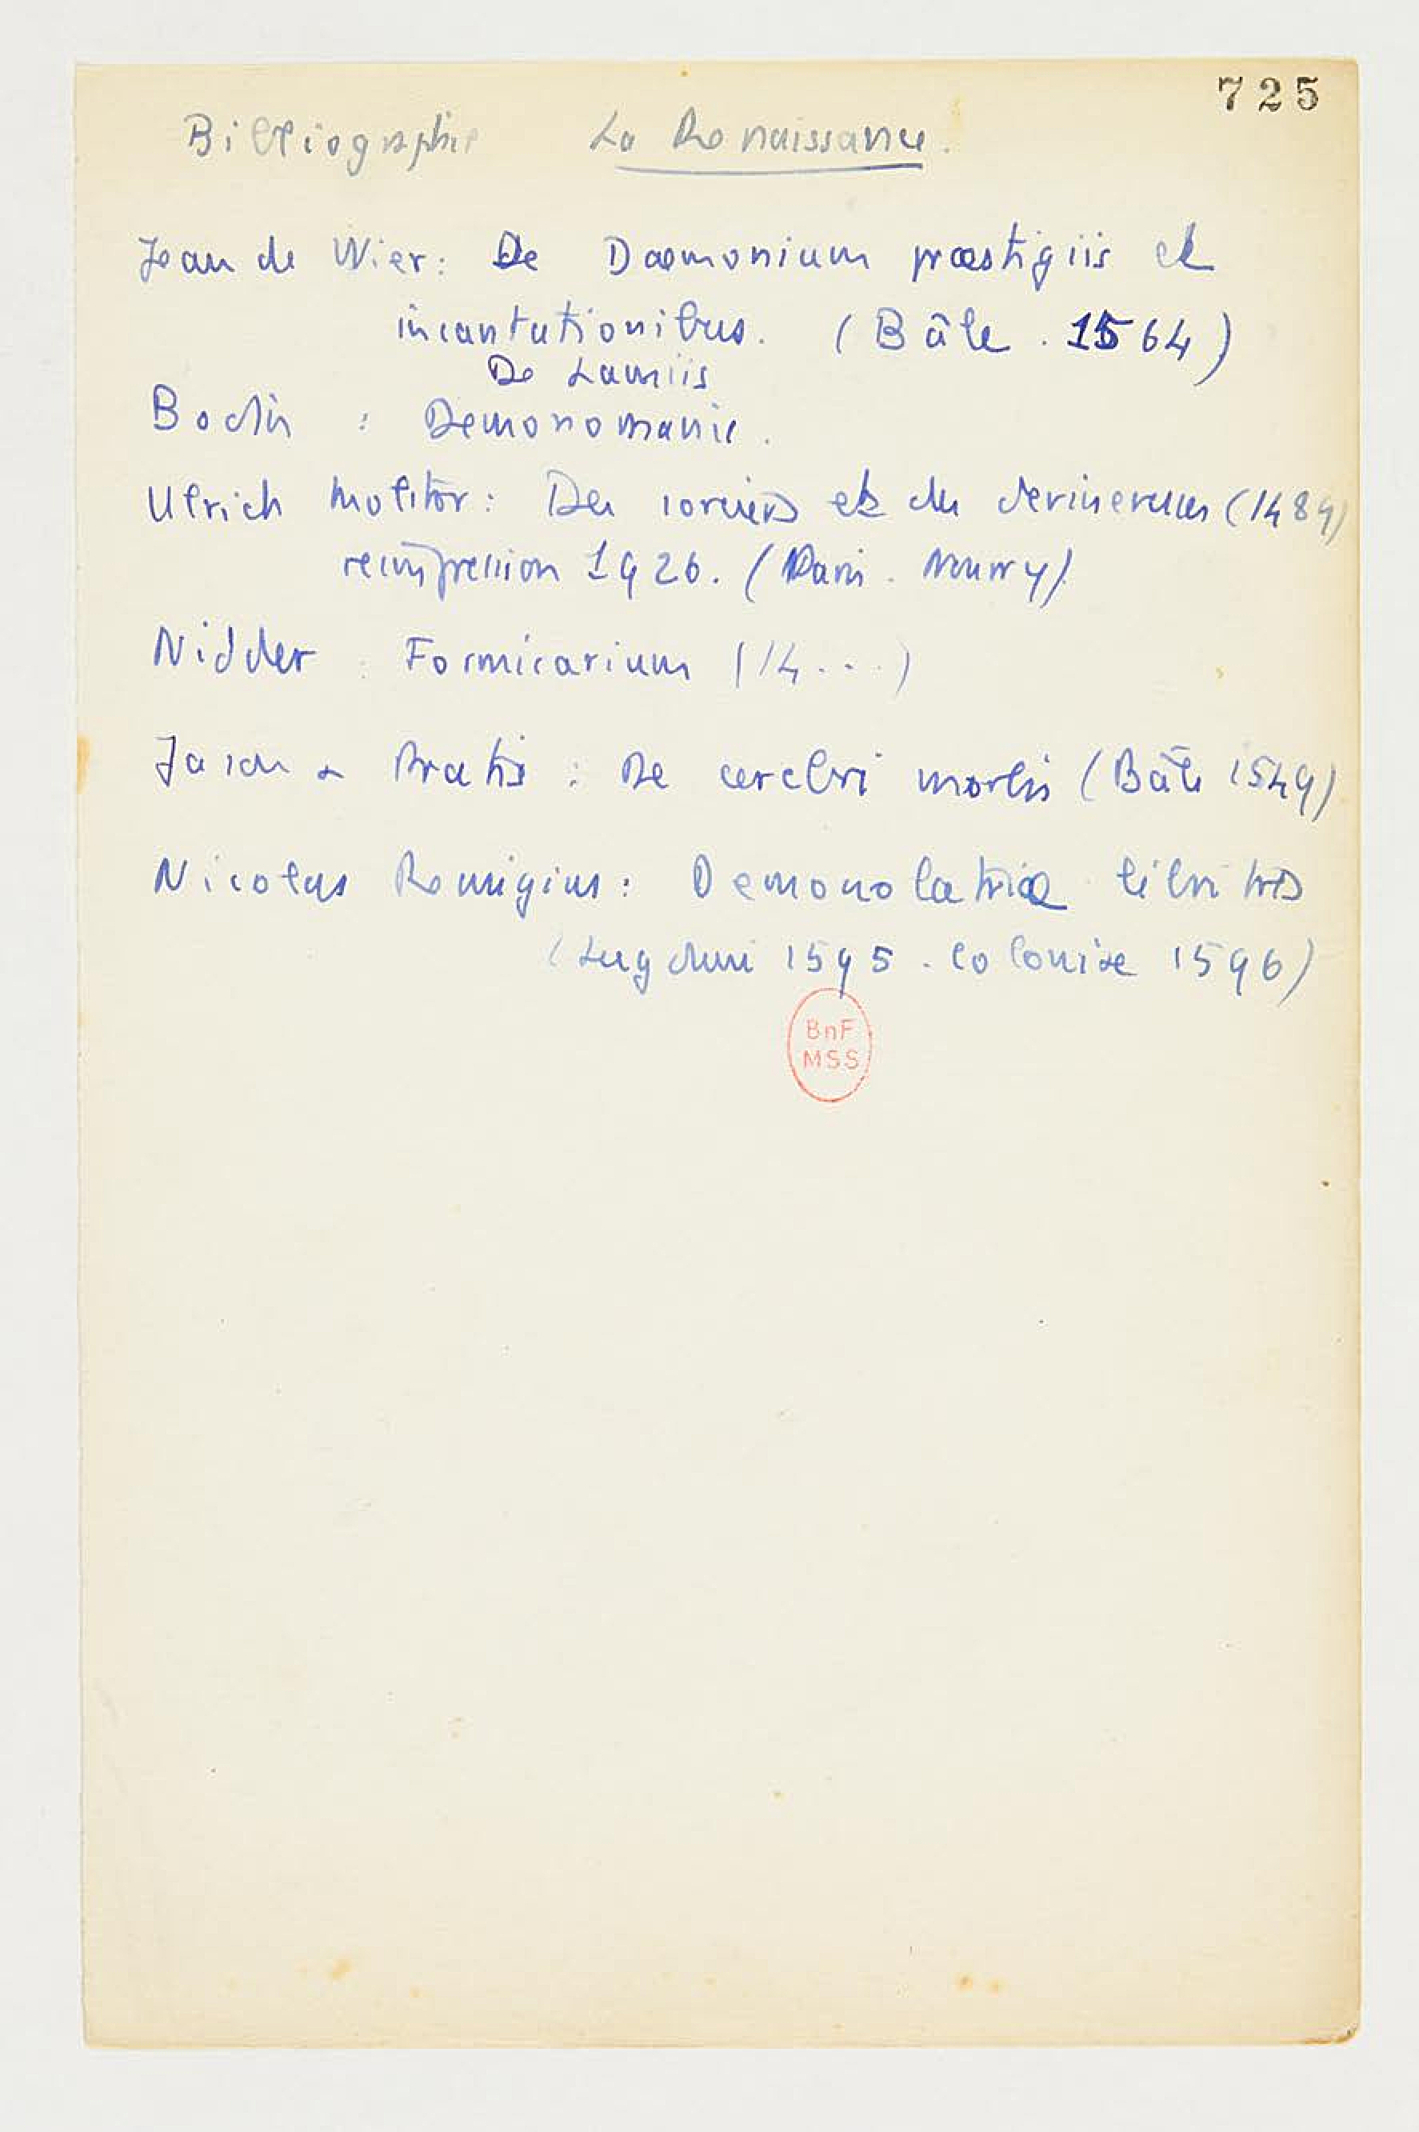 725
Bibliographie La Renaissance.
Jean de Wier : De Daemonium praestigiis et
incantationibus. (Bâle . 1564)
De Lamiis
Bodin : Demonomanie.
Ulrich Molitor : Des sorcières et des devineresses (1489)
reimpression 1926. (Paris. Nourry).
Nidder : Formicarium (14...)
Jason a Pratis : De cerebri morbis (Bâle 1549)
Nicolas Remigius : Demonolatriae libri tres
(Lugduni 1595. Coloniae 1596)
BnF
MSS